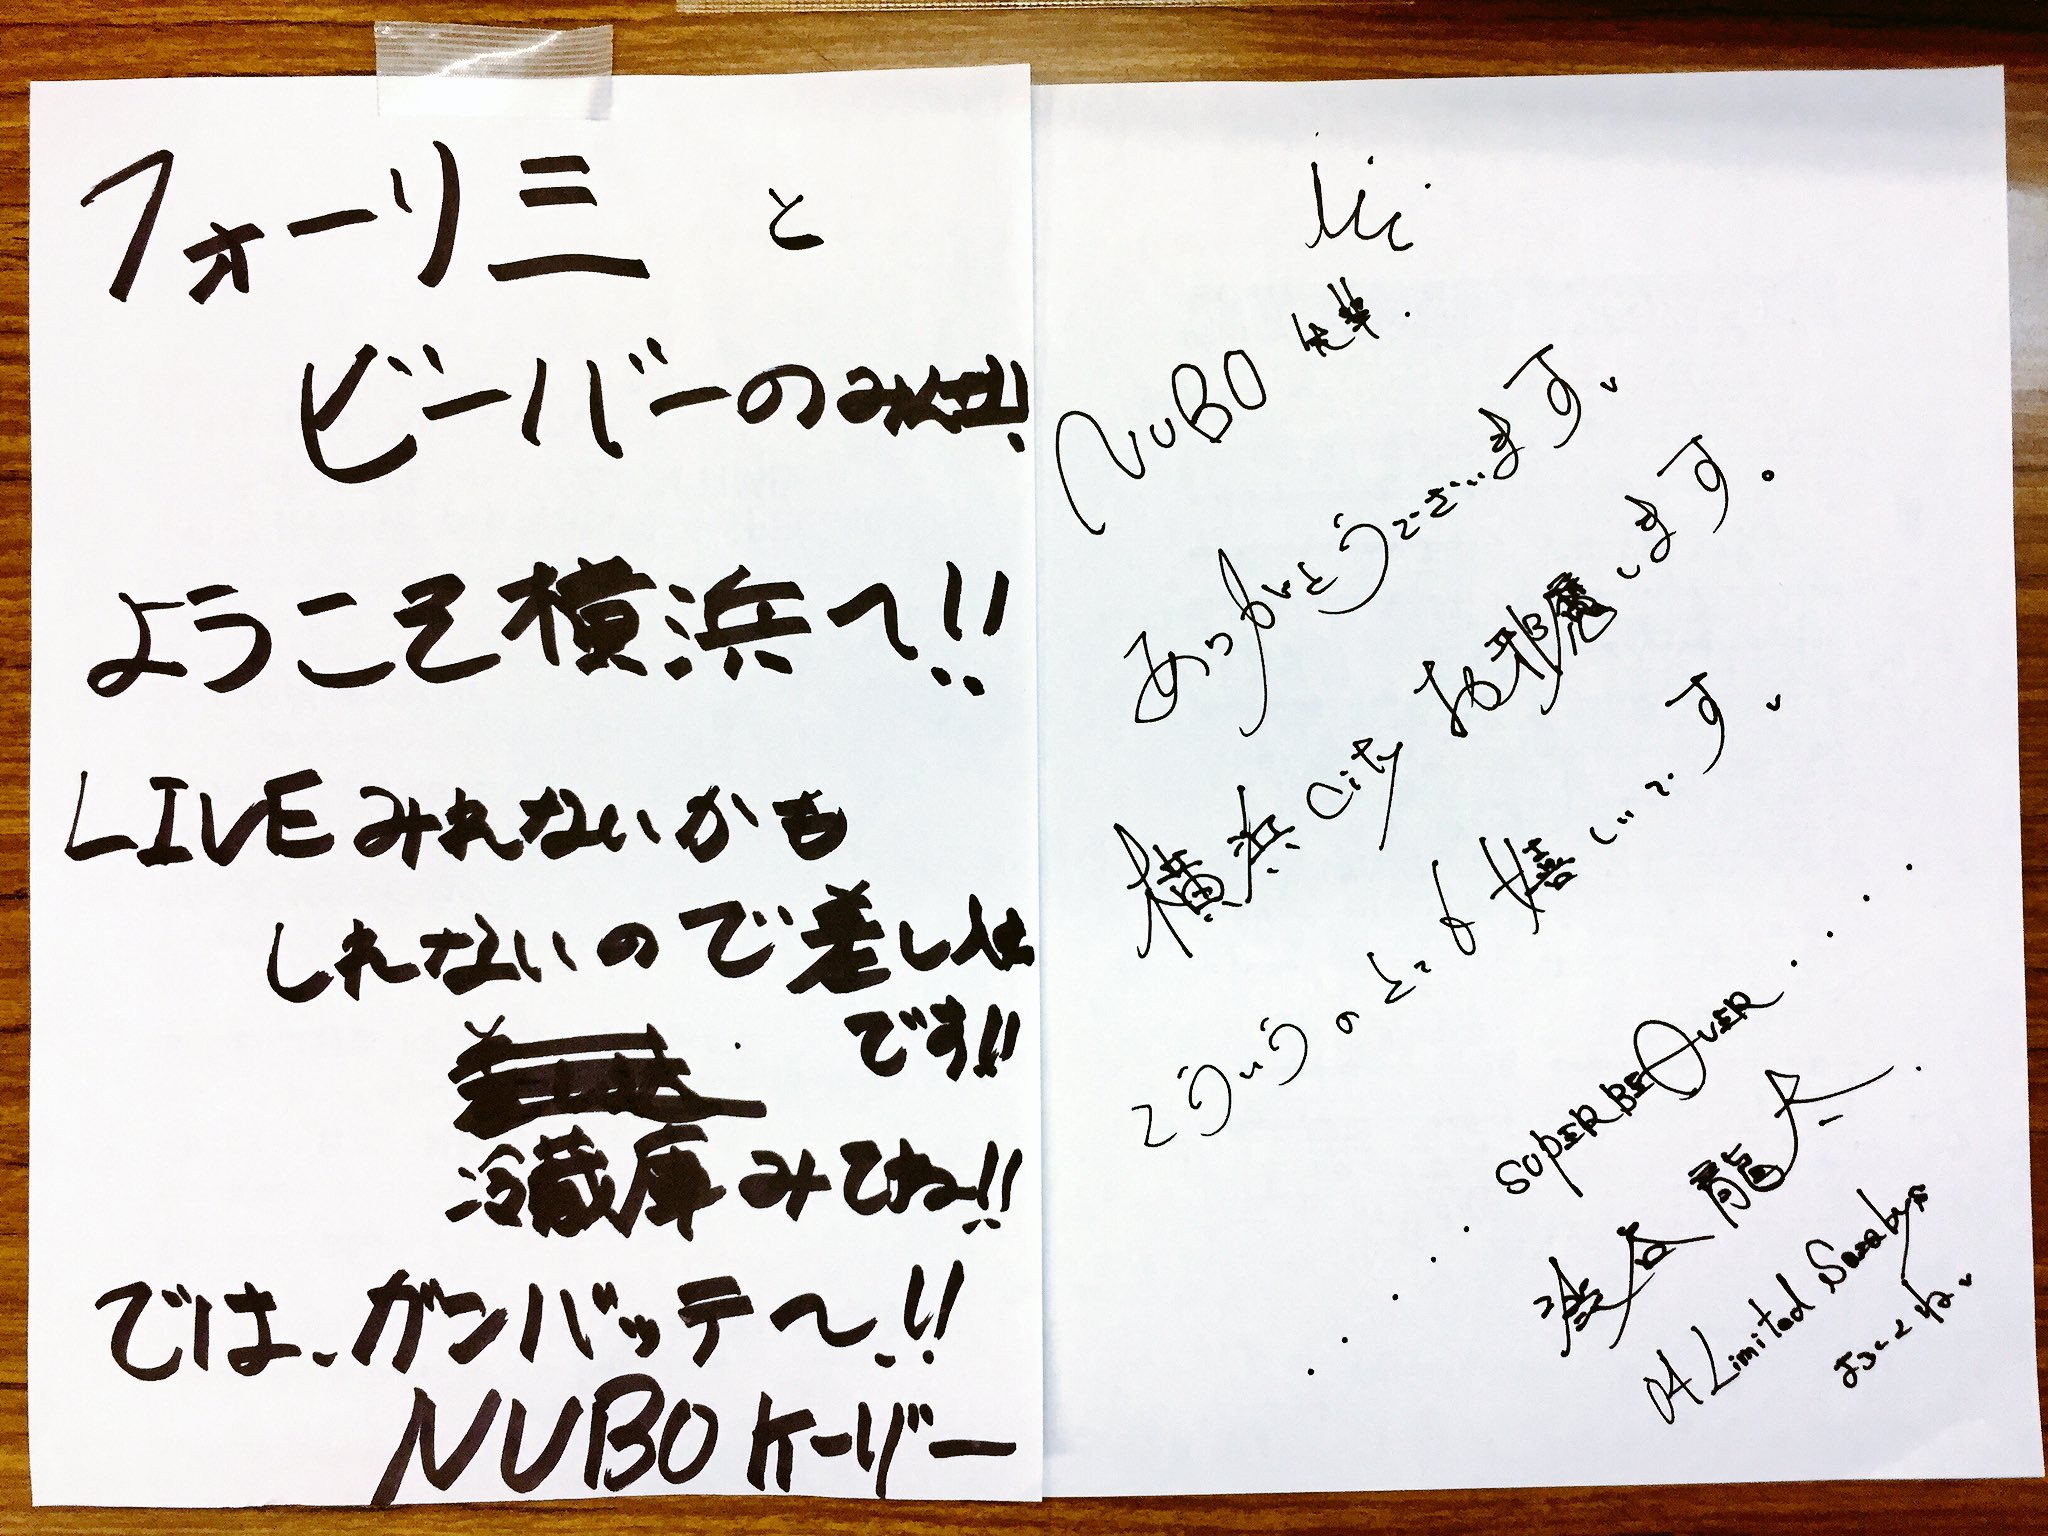 フォーリミ と
ビーバーの
ようこそ横浜へ!!
LIVEみれないかも
しれないので差し入れ
です!!
冷蔵庫みてね!!
では、ガンバッテ〜!!
NUBO ケーザー
NUBO 先輩.
ありがとうございます、
横浜City お邪魔します。
こういうのとっても嬉しいです、
SUPER BEAVER
渋谷 龍太.
04 Limited Sazabys
よろしくね、